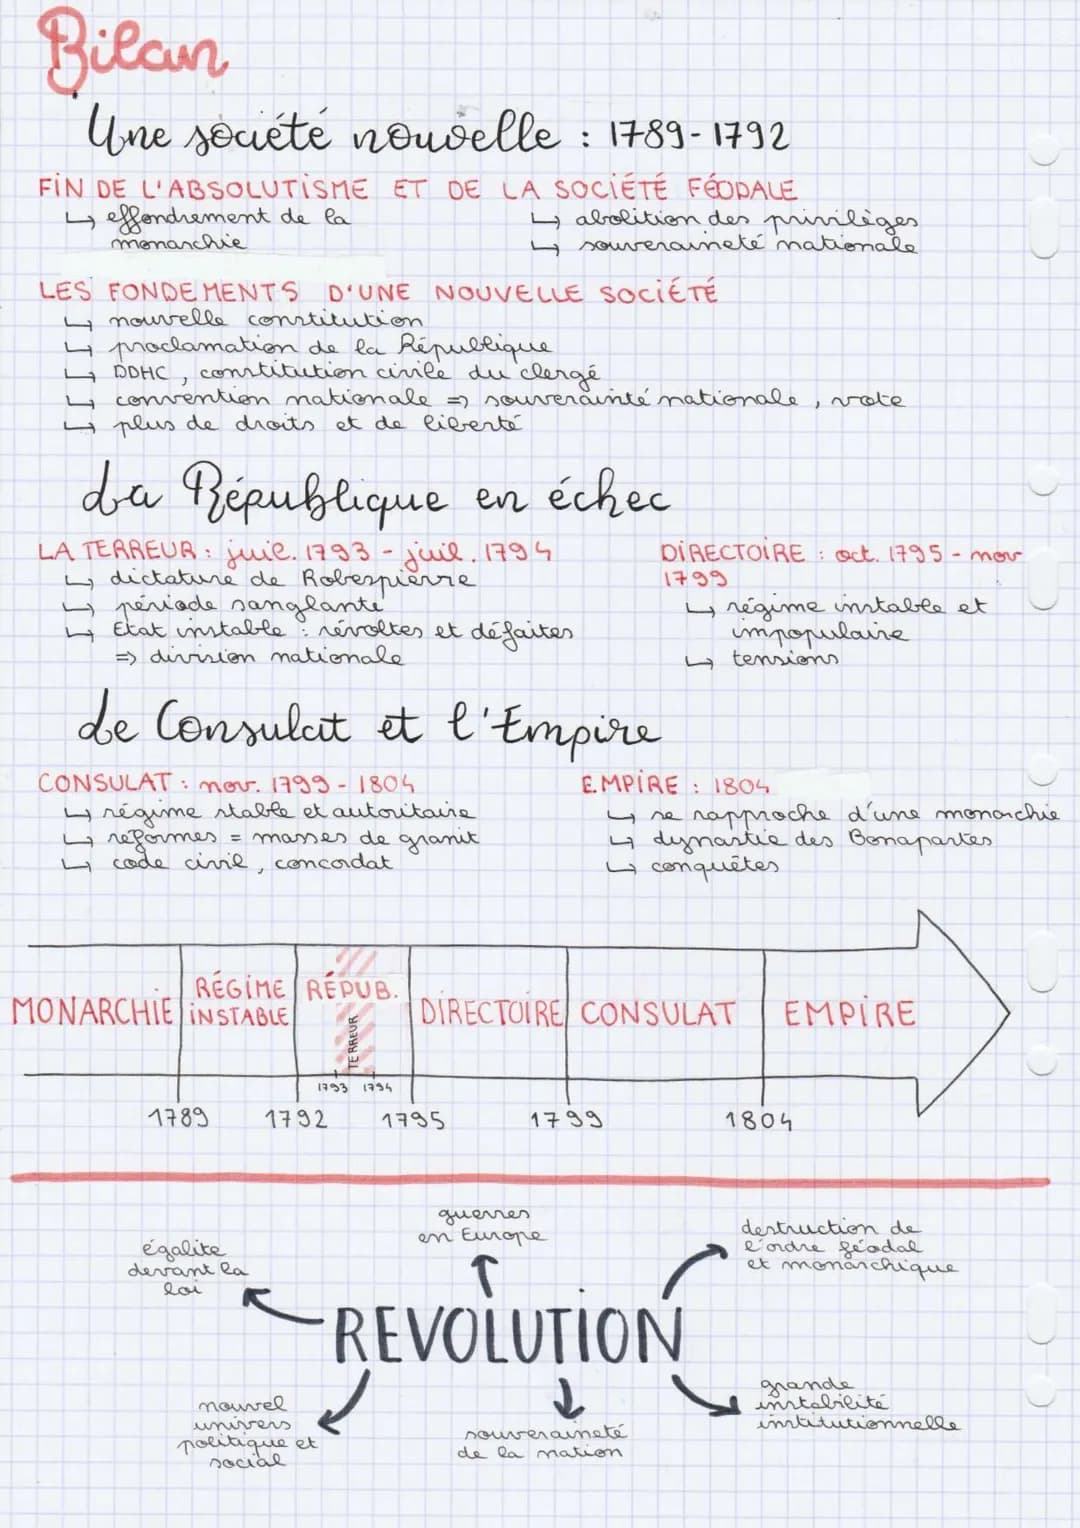 Bilan
Une société nouvelle : 1789-1792
FIN DE L'ABSOLUTISME ET DE LA SOCIÉTÉ FÉODALE
↳ effondrement de la
monarchie
↳ abolition des privilèges
↳ souveraineté nationale
LES FONDEMENTS D'UNE NOUVELLE SOCIÉTÉ
↳ nouvelle constitution
↳ proclamation de la République
↳ DDHC, constitution civile du clergé
↳ convention nationale => souverainté nationale, vote
↳ plus de droits et de liberté
La République en échec
LA TERREUR : juil. 1793 - juil. 1794
↳ dictature de Robespierre
↳ période sanglante
↳ Etat instable : révoltes et défaites
=> division nationale
DIRECTOIRE : oct. 1795 - nov
1799
↳ régime instable et
impopulaire
↳ tensions
Le Consulat et l'Empire
CONSULAT : nov. 1799 - 1804
↳ régime stable et autoritaire
↳ reformes = masses de granit
↳ code civil, concordat
EMPIRE : 1804
↳ se rapproche d'une monarchie
↳ dynastie des Bonapartes
↳ conquêtes
MONARCHIE
RÉGIME
INSTABLE
RÉPUB.
TERREUR
DIRECTOIRE
CONSULAT
EMPIRE
1793 1794
1789 1792 1795 1799 1804
guerres
en Europe
égalite
devant la
loi
destruction de
l'ordre féodal
et monarchique
REVOLUTION
nouvel
univers
politique et
social
souveraineté
de la nation
grande
instabilité
institutionnelle